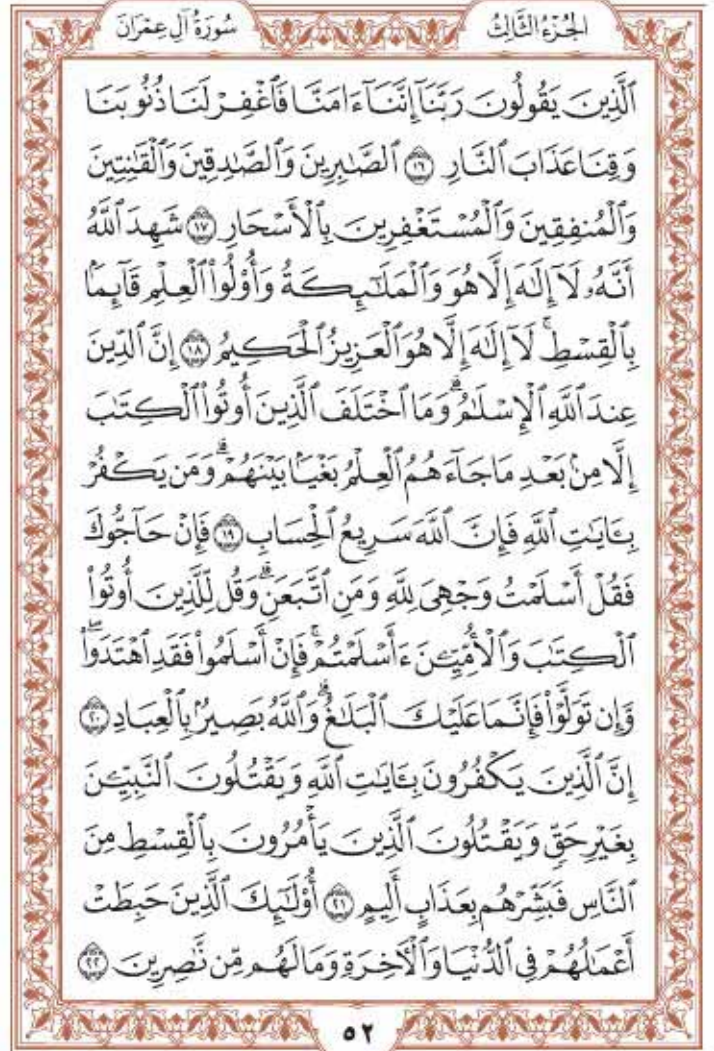 الجُزْءُ الثَّالِثُ سُورَةُ آلِ عِمْرَانَ
ٱلَّذِينَ يَقُولُونَ رَبَّنَآ إِنَّنَآ ءَامَنَّا فَٱغْفِرْ لَنَا ذُنُوبَنَا
وَقِنَا عَذَابَ ٱلنَّارِ ١٦ ٱلصَّٰبِرِينَ وَٱلصَّٰدِقِينَ وَٱلْقَٰنِتِينَ
وَٱلْمُنفِقِينَ وَٱلْمُسْتَغْفِرِينَ بِٱلْأَسْحَارِ ١٧ شَهِدَ ٱللَّهُ
أَنَّهُۥ لَآ إِلَٰهَ إِلَّا هُوَ وَٱلْمَلَٰٓئِكَةُ وَأُو۟لُوا۟ ٱلْعِلْمِ قَآئِمًۢا
بِٱلْقِسْطِ ۚ لَآ إِلَٰهَ إِلَّا هُوَ ٱلْعَزِيزُ ٱلْحَكِيمُ ١٨ إِنَّ ٱلدِّينَ
عِندَ ٱللَّهِ ٱلْإِسْلَٰمُ ۗ وَمَا ٱخْتَلَفَ ٱلَّذِينَ أُوتُوا۟ ٱلْكِتَٰبَ
إِلَّا مِنۢ بَعْدِ مَا جَآءَهُمُ ٱلْعِلْمُ بَغْيًۢا بَيْنَهُمْ ۗ وَمَن يَكْفُرْ
بِـَٔايَٰتِ ٱللَّهِ فَإِنَّ ٱللَّهَ سَرِيعُ ٱلْحِسَابِ ١٩ فَإِنْ حَآجُّوكَ
فَقُلْ أَسْلَمْتُ وَجْهِىَ لِلَّهِ وَمَنِ ٱتَّبَعَنِ ۗ وَقُل لِّلَّذِينَ أُوتُوا۟
ٱلْكِتَٰبَ وَٱلْأُمِّيِّـۧنَ ءَأَسْلَمْتُمْ ۚ فَإِنْ أَسْلَمُوا۟ فَقَدِ ٱهْتَدَوا۟ ۖ
وَّإِن تَوَلَّوْا۟ فَإِنَّمَا عَلَيْكَ ٱلْبَلَٰغُ ۗ وَٱللَّهُ بَصِيرٌۢ بِٱلْعِبَادِ ٢٠
إِنَّ ٱلَّذِينَ يَكْفُرُونَ بِـَٔايَٰتِ ٱللَّهِ وَيَقْتُلُونَ ٱلنَّبِيِّـۧنَ
بِغَيْرِ حَقٍّ وَيَقْتُلُونَ ٱلَّذِينَ يَأْمُرُونَ بِٱلْقِسْطِ مِنَ
ٱلنَّاسِ فَبَشِّرْهُم بِعَذَابٍ أَلِيمٍ ٢١ أُو۟لَٰٓئِكَ ٱلَّذِينَ حَبِطَتْ
أَعْمَٰلُهُمْ فِى ٱلدُّنْيَا وَٱلْءَاخِرَةِ وَمَا لَهُم مِّن نَّٰصِرِينَ ٢٢
٥٢